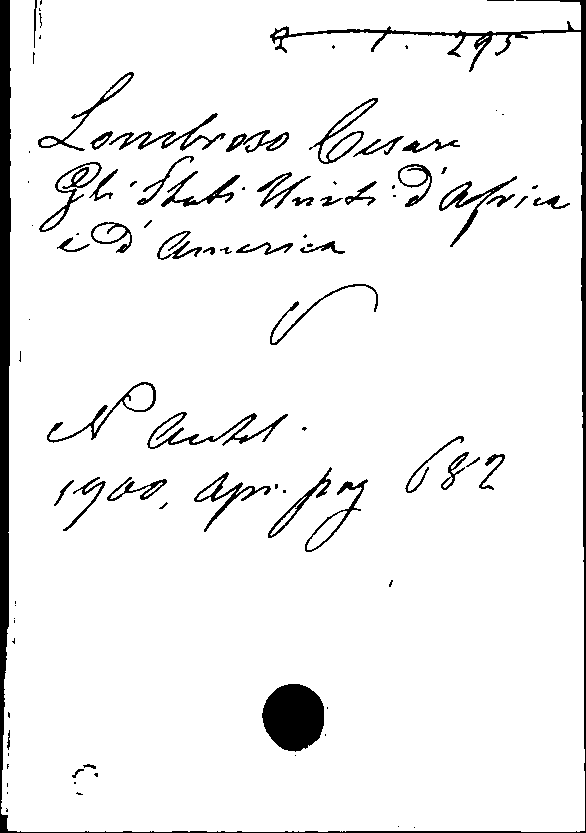 2 . 1 . 295
Lombroso Cesare
Gli Stati Uniti d'Africa
e d'America
N Antol.
1900, Apr. pag 682